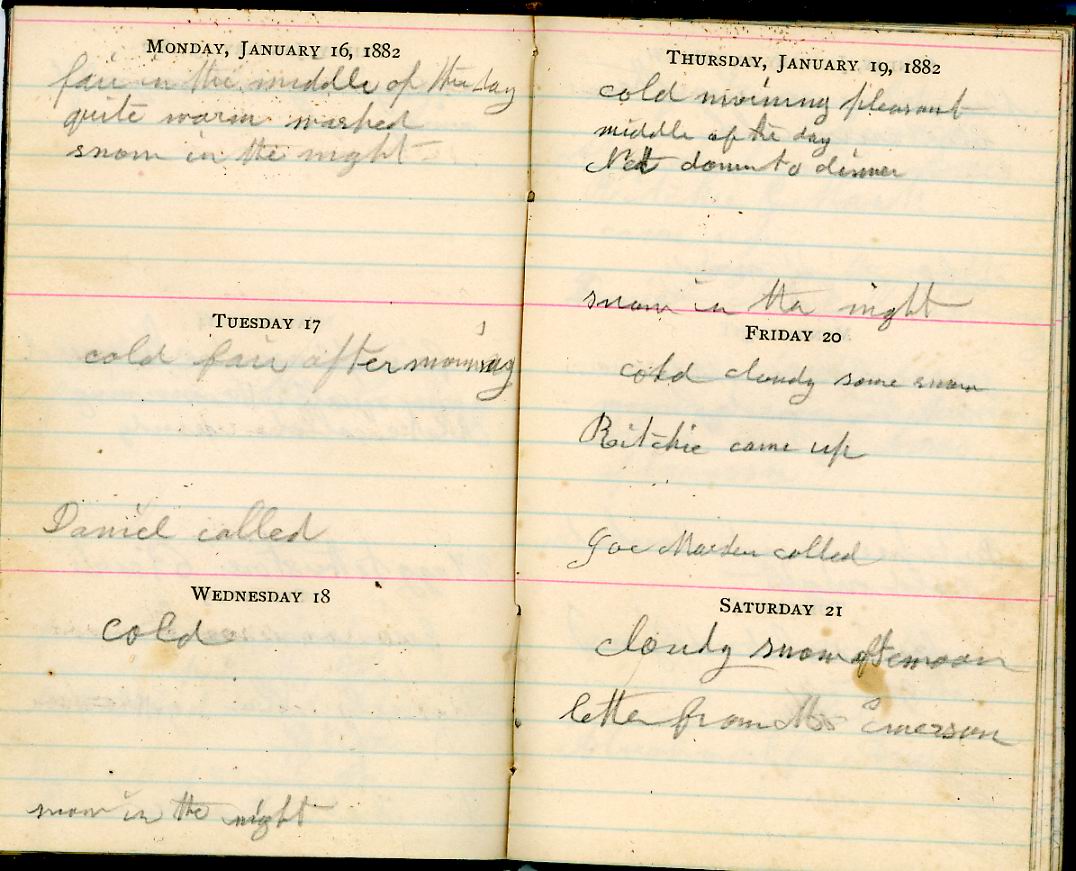 MONDAY, JANUARY 16, 1882
fair in the middle of the day
quite warm washed
snow in the night
TUESDAY 17
cold fair after morning
Daniel called
WEDNESDAY 18
cold
snow in the night
THURSDAY, JANUARY 19, 1882
cold morning pleasant
middle of the day
down to dinner
snow in the night
FRIDAY 20
cold cloudy some snow
Ritchie came up
called
SATURDAY 21
cloudy snow afternoon
letter from Emerson